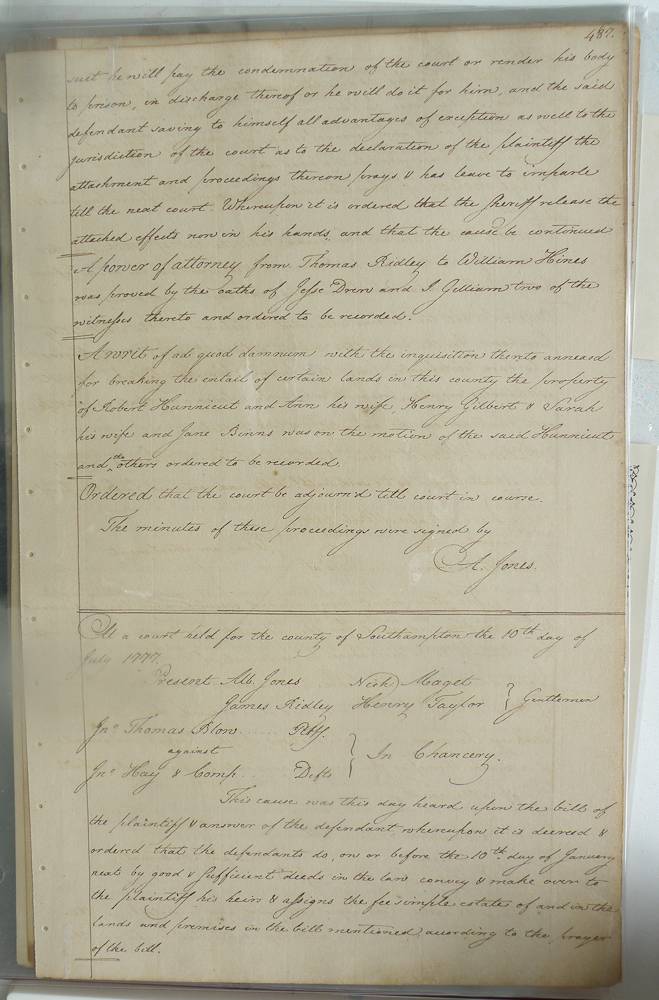 487.
suit he will pay the condemnation of the court or render his body
to prison, in discharge thereof or he will do it for him, and the said
defendant saving to himself all advantages of exception as well to the
jurisdiction of the court as to the declaration of the plaintiff the
attachment and proceedings thereon prays & has leave to imparle
till the next court. Whereupon it is ordered that the sheriff release the
attached effects now in his hands, and that the cause be continued
A power of attorney from Thomas Ridley to William Hines
was proved by the oaths of Jesse Drew and J. Gilliam two of the
witnesses thereto and ordered to be recorded.
A writ of ad quod damnum with the inquisition thereto annexed
for breaking the entail of certain lands in this county the property
of Robert Hunnicut and Ann his wife, Henry Gilbert & Sarah
his wife and Jane Binns was on the motion of the said Hunnicut
and the others ordered to be recorded.
Ordered that the court be adjourn'd till court in course.
The minutes of these proceedings were signed by
A. Jones.
At a court held for the county of Southampton the 10th day of
July 1777.
Present Alb. Jones Nich) Maget
James Ridley Henry Taylor } Gentlemen
Jno Thomas Blow Peltf.
against } In Chancery.
Jno Hay & Comp. Defts
This cause was this day heard upon the bill of
the plaintiff & answer of the defendant, whereupon it is decreed &
ordered that the defendants do, on or before the 10th day of January
next by good & sufficient deeds in the law convey & make over to
the plaintiff his heirs & assigns the fee simple estate of and in the
lands and premises in the bill mentioned, according to the prayer
of the bill.